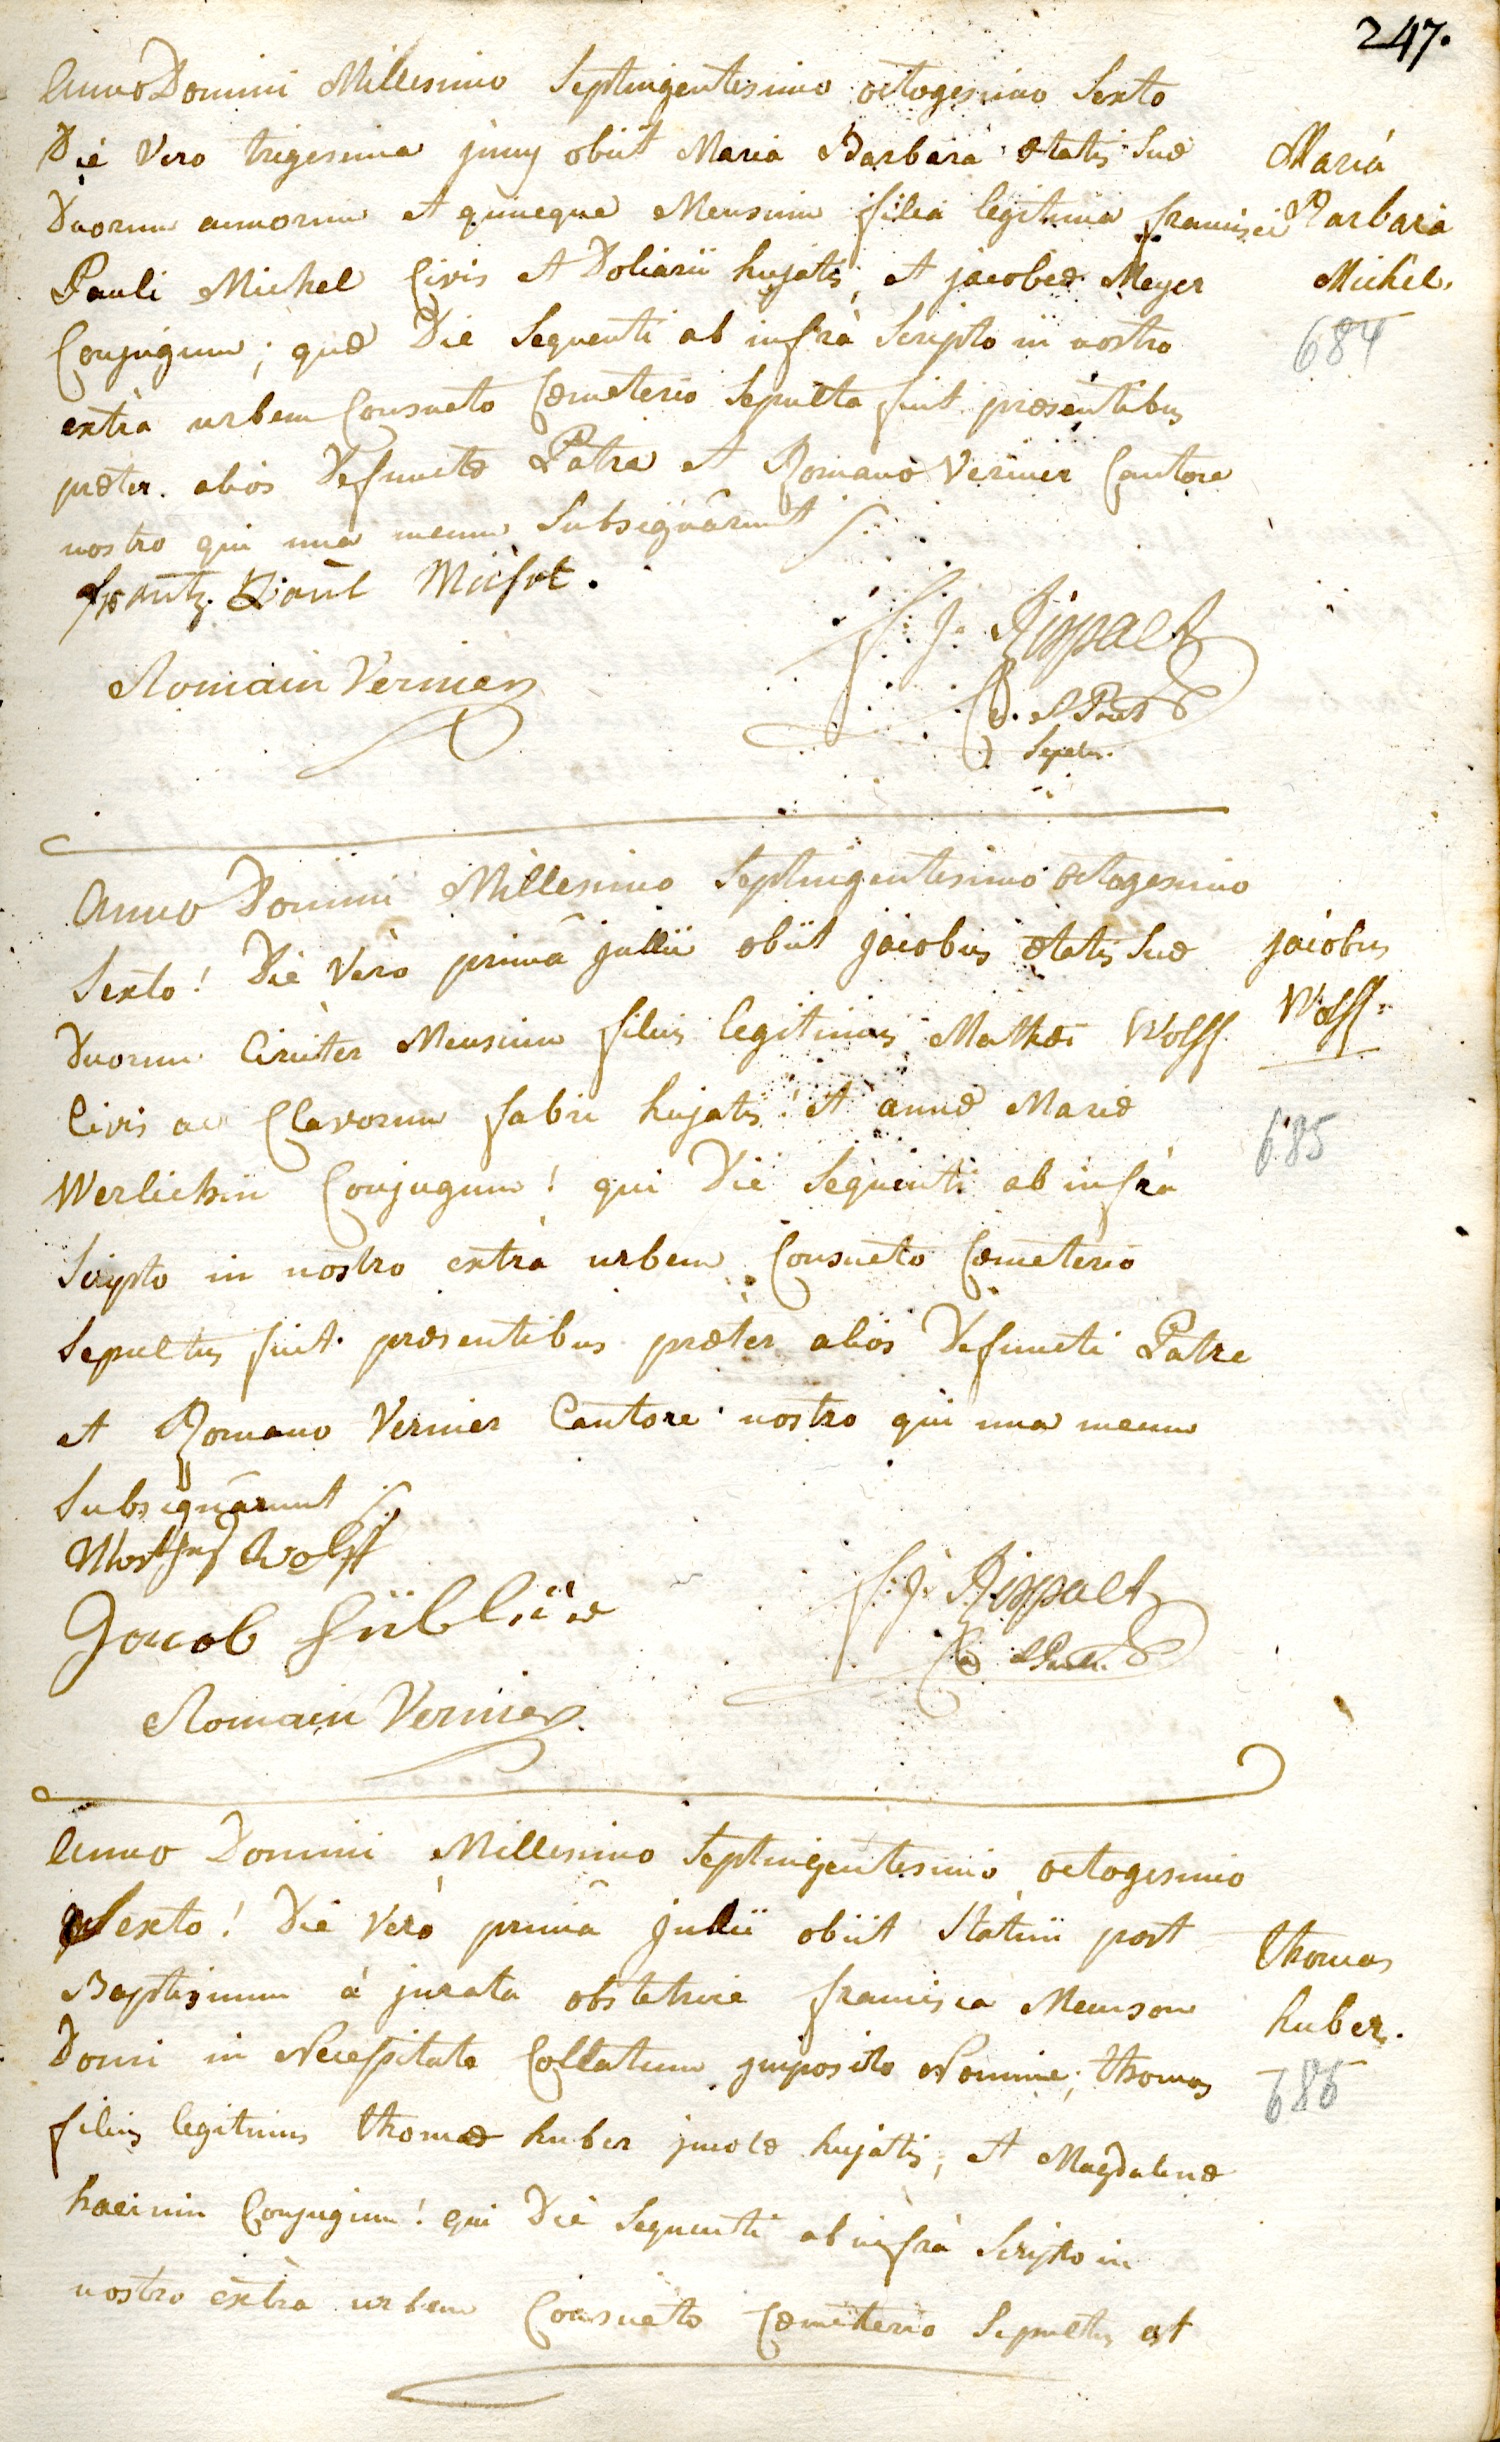 247.
Anno Domini Millesimo Septingentesimo octogesimo Sexto
Die Vero trigesima junij obiit Maria Barbara ætatis Suæ
Duorum annorum et quinque Mensium filia legitima francisci
Pauli Michel Civis et Doliarii hujatis, et jacobeæ Meyer
Conjugum; quæ Die Sequenti ab infrà Scripto in nostro
extrà urbem Consueto Cœmeterio Sepulta fuit præsentibus
præter alios Defunctæ Patre et Romano Vernier Cantore
nostro qui una mecum Subsignârunt
Maria
Barbara
Michel.
684
frantz Paul Michel.
Romain Vernier
f: j. Rippalt
Sepeliens.
Anno Domini Millesimo Septingentesimo octogesimo
Sexto! Die Verò primâ julii obiit jacobus ætatis Suæ
Duorum Circiter Mensium filius legitimus Mathæi Wolff
Civis ac Clavorum fabri hujatis! et annæ Mariæ
Werlichin Conjugum! qui Die Sequenti ab infrà
Scripto in nostro extrà urbem Consueto Cœmeterio
Sepultus fuit præsentibus præter alios Defuncti Patre
et Romano Vernier Cantore nostro qui una mecum
Subsignârunt
jacobus
Wolff.
685
Mathis Wolff
Jacob
Romain Vernier
f: j: Rippalt
Anno Domini Millesimo Septingentesimo octogesimo
Sexto! Die Verò primâ Julii obiit Statim post
Baptismum à jurata obstetrice francisca
Domi in Necessitate Collatum imposito Nomine; thomas
filius legitimus thomæ huber incolæ hujatis, et Magdalenæ
Conjugum! qui Die Sequenti ab infrà Scripto in
nostro extrà urbem Consueto Cœmeterio Sepultus est
thomas
huber.
686